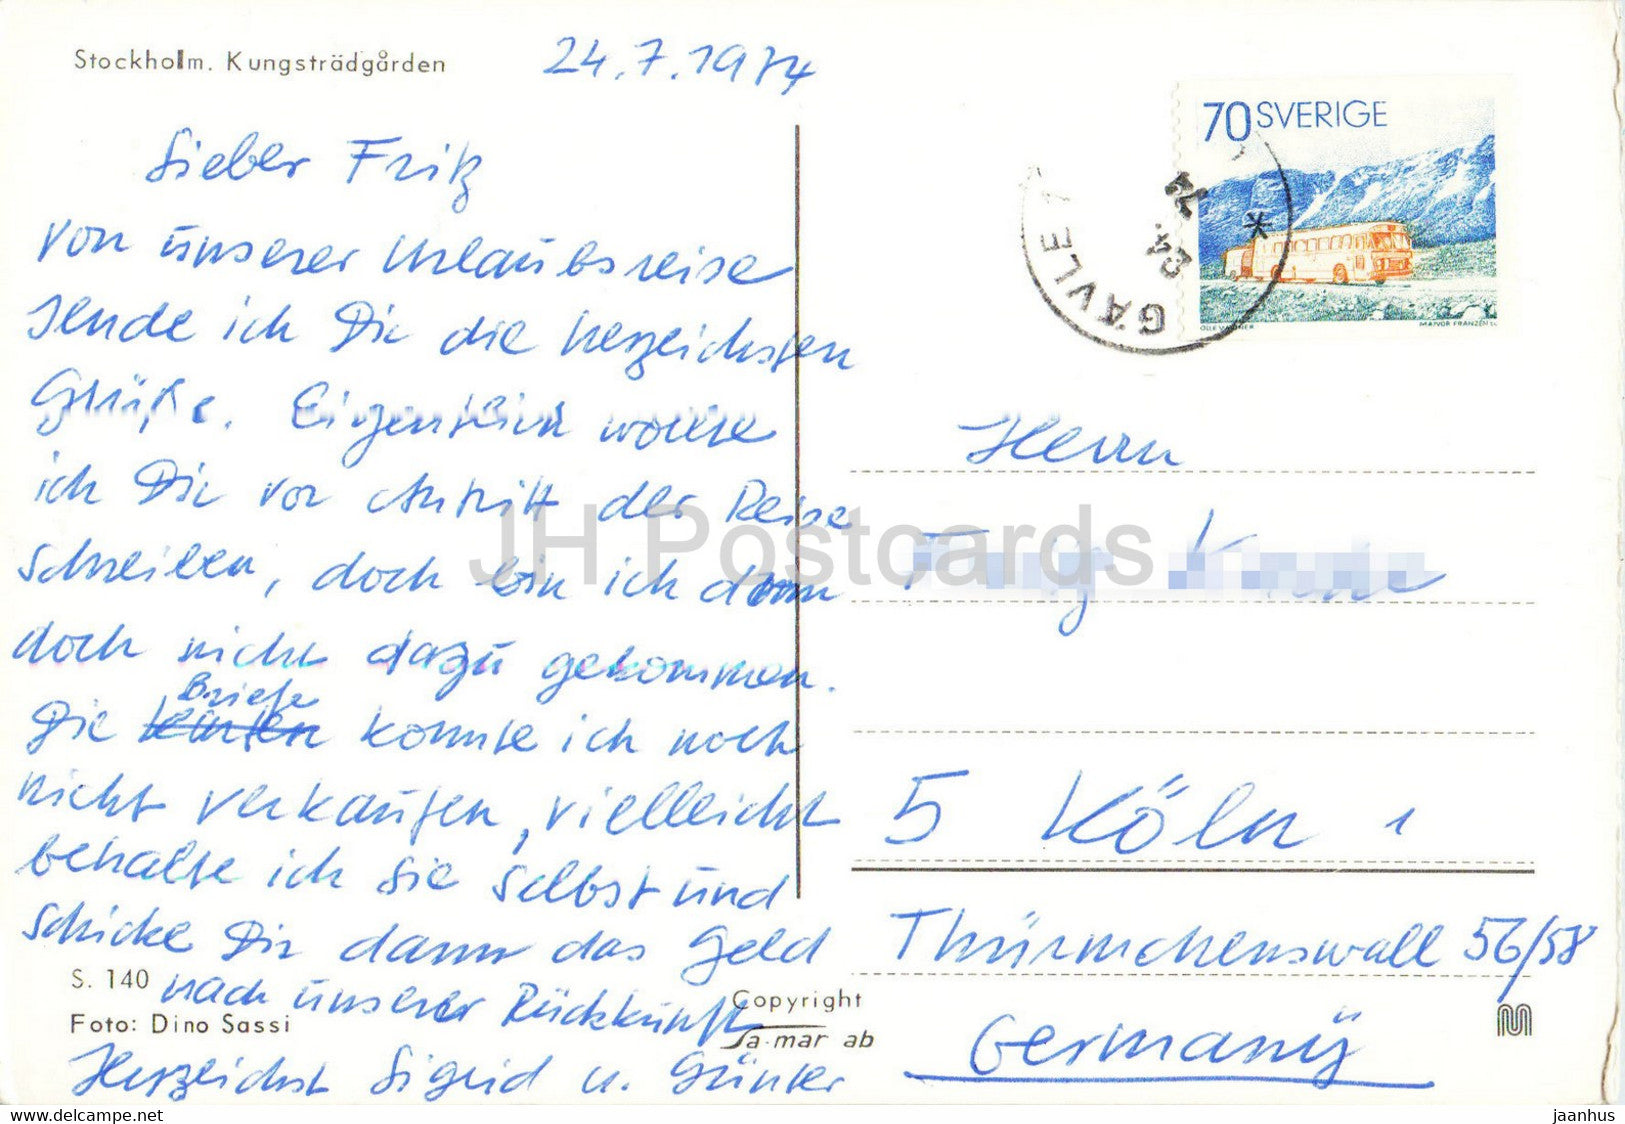 Stockholm. Kungsträdgården
24.7.1974
Lieber Fritz
von unserer Urlaubsreise
sende ich Dir die herzlichsten
Grüße. Eigentlich wollte
ich Dir vor Antritt der Reise
schreiben, doch bin ich dann
doch nicht dazu gekommen.
Briefe
Die konnte ich noch
nicht verkaufen, vielleicht
behalte ich sie selbst und
schicke Dir dann das Geld
nach unserer Rückkunft
Herzlichst Sigrid u. Günter
S. 140
Foto: Dino Sassi
Copyright
Sa-mar ab
70 SVERIGE
OLLE WAGNER
MAJVOR FRANZÉN SC
GÄVLE 1
74
JH Postcards
Herrn
5 Köln 1
Thürmchenswall 56/58
Germany
delcampe.net
jaanhus